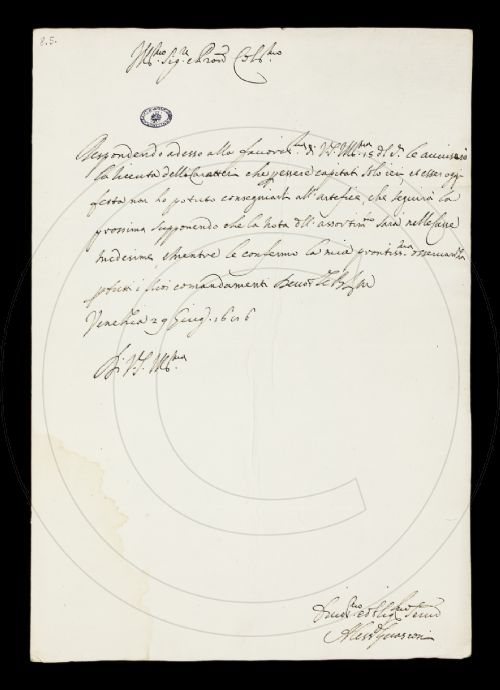 Ill.mo Sig.re e Pron Col.mo
Rispondendo adesso alla favorit.ma di V.S. Ill.ma 15 d. le avviserò
la ricevuta delli Caratteri che per essere capitati solo ieri, et esser oggi
festa non ho potuto consegniarli all'artefice, che seguirà la
prossima supponendo che la nota dell' assortim.to sarà nelle Casse
medesime, e mentre le confermo la mia prontiss.ma osservanza
a tutti i suoi comandamenti
Venetia 29 Giug.o 16
Di V.S. Ill.ma
Dev.mo et Obblig.mo Ser.
Aless.o Guasconi